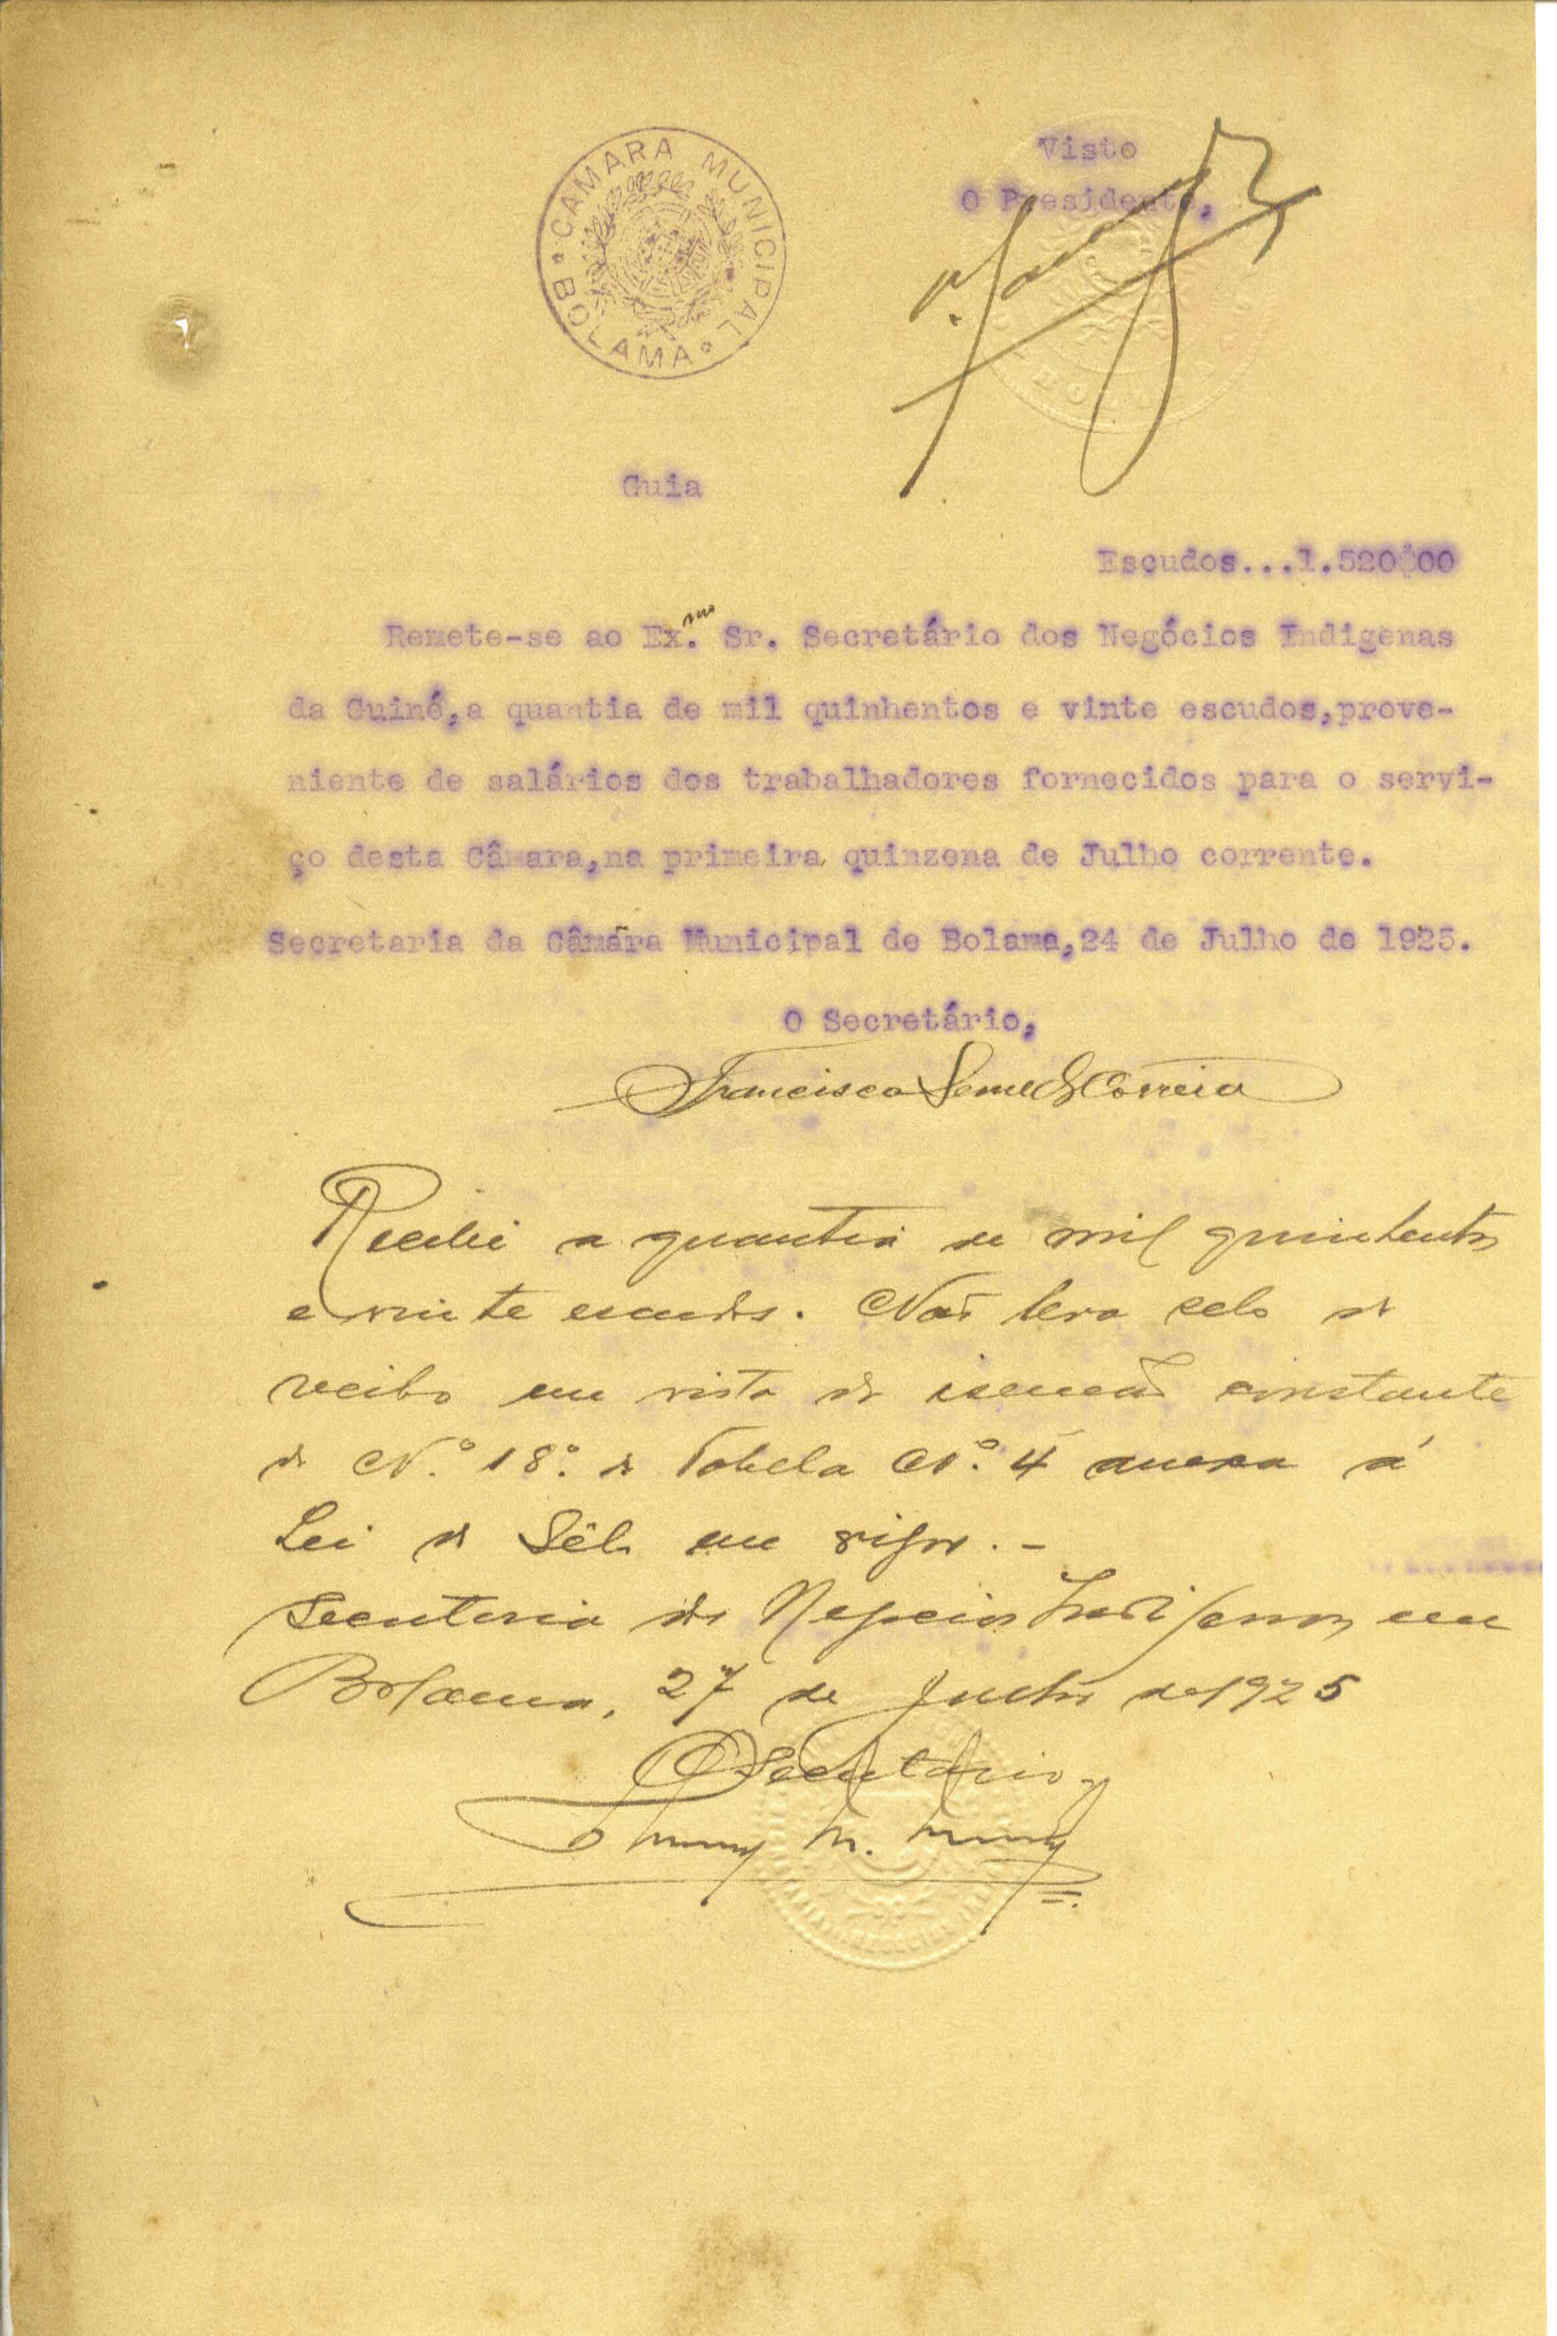 CAMARA MUNICIPAL
BOLAMA
Visto
O Presidente,
Guia
Escudos...1.520$00
Remete-se ao Ex.mo Sr. Secretário dos Negócios Indigenas
da Guiné,a quantia de mil quinhentos e vinte escudos,prove-
niente de salários dos trabalhadores fornecidos para o servi-
ço desta Câmara,na primeira quinzena de Julho corrente.
Secretaria da Câmara Municipal de Bolama,24 de Julho de 1925.
O Secretário,
Francisco Correia
Recebi a quantia de mil quinhentos
e vinte escudos. Não leva selo o
recibo em vista da isenção constante
do N.º 18.º da Tabela N.º 4 anexa á
Lei do Sêlo em vigor.-
Secretaria dos Negocios Indigenas, em
Bolama, 27 de Julho de 1925
O Secretário,